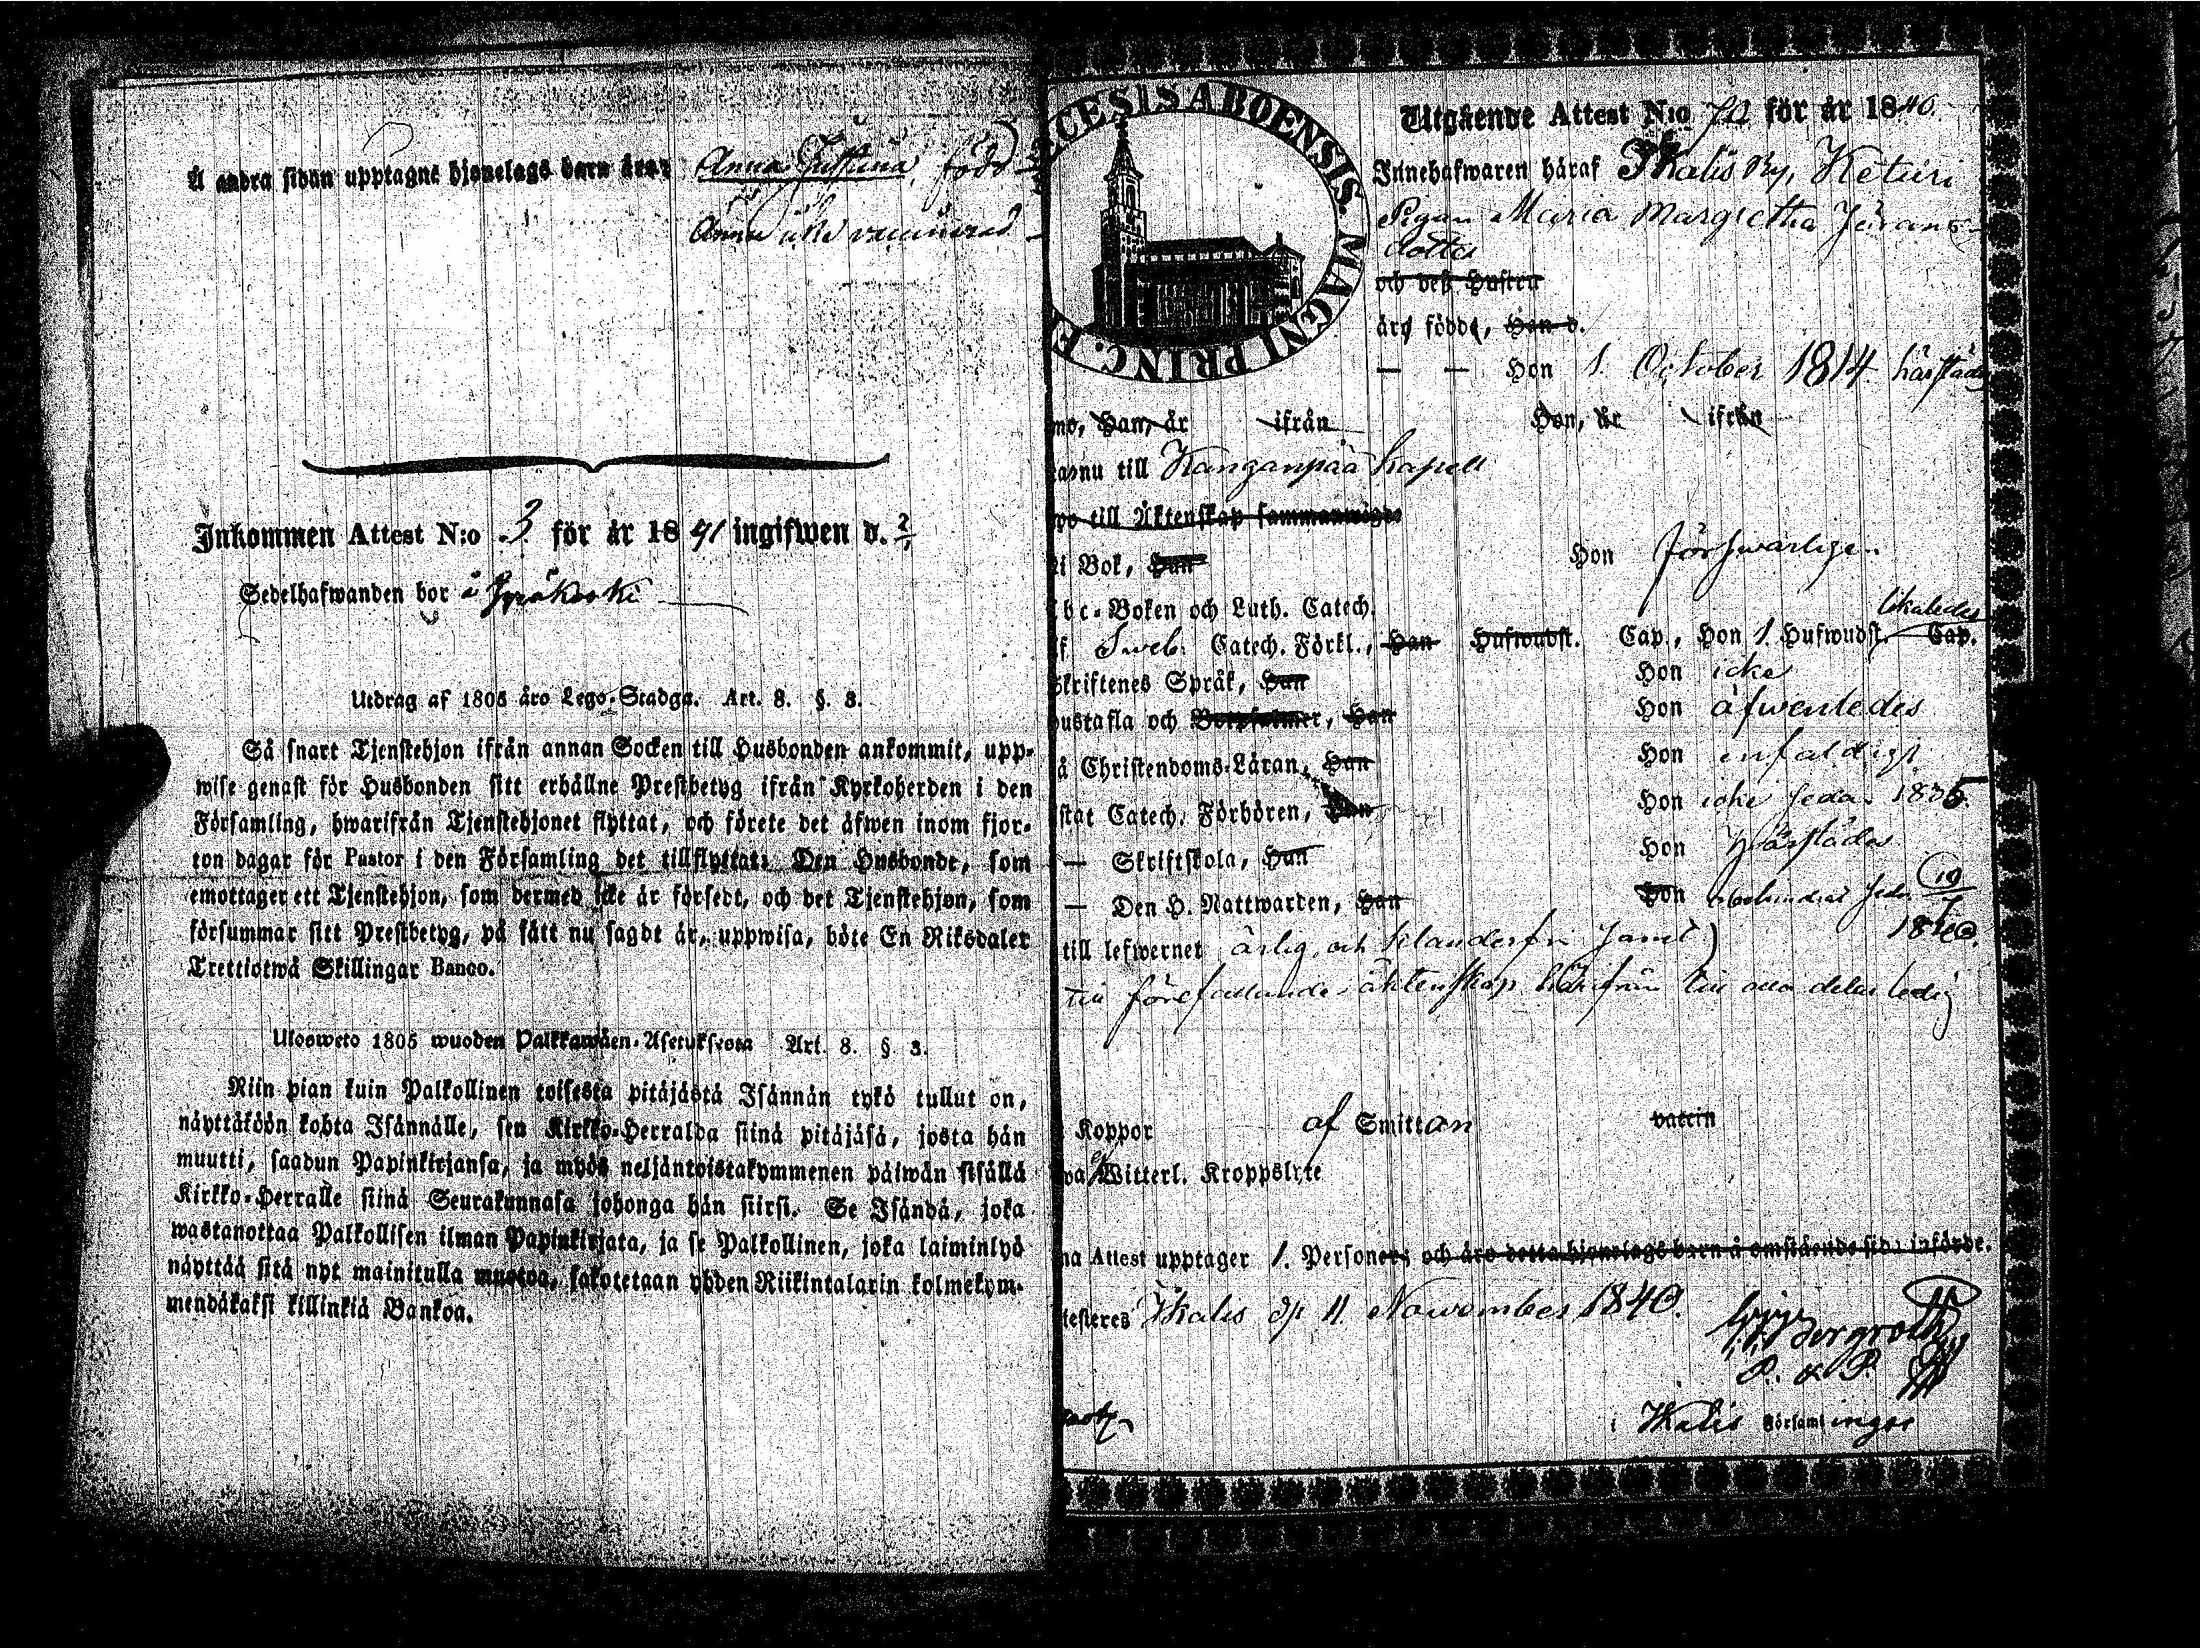 Å andra sidan upptagne hjonelags barn äro: Anna Justina, född
Ännu icke vaccinerad
Inkommen Attest N:o 3 för år 1841 ingifwen d.
Sedelhafwanden bor å
Utdrag af 1805 års Lego-Stadga. Art. 8. §. 3.
Så snart Tjenstehjon ifrån annan Socken till Husbonden ankommit, upp-
wise genast för Husbonden sitt erhållne Prestbetyg ifrån Kyrkoherden i den
Församling, hwarifrån Tjenstehjonet flyttat, och förete det äfwen inom fjor-
ton dagar för Pastor i den Församling det tillflyttat. Den Husbonde, som
emottager ett Tjenstehjon, som dermed icke är försedt, och det Tjenstehjon, som
försummar sitt Prestbetyg, på sätt nu sagdt är, uppwisa, böte En Riksdaler
Trettiotwå Skillingar Banco.
Ulosweto 1805 wuoden Palkkawäen-Asetuksesta Art. 8. §. 3.
Niin pian kuin Palkollinen toisesta pitäjästä Isännän tykö tullut on,
näyttäköön kohta Isännälle, sen Kirkko-Herralda siinä pitäjäsä, josta hän
muutti, saadun Papinkirjansa, ja myös neljäntoistakymmenen päiwän sisällä
Kirkko-Herralle siinä Seurakunnasa johonga hän siirsi. Se Isändä, joka
wastanottaa Palkollisen ilman Papinkirjata, ja se Palkollinen, joka laiminlyö
näyttää sitä nyt mainitulla muotoa, sakotetaan yhden Riikintalarin kolmekym-
mendäkaksi killinkiä Bankoa.
CESIS ABOENSIS. MAGNI PRINC. F
Utgående Attest N:o 70 för år 1840.
Innehafwaren häraf Ikalis By, Keturi
Pigan Maria Margretha Jörans-
dotter
och dess Hustru
äro födde, Han d.
— — Hon 1 October 1814 härstädes
mo, Han, år ifrån Hon, år ifrån
nu till Kanganpää Kapell
till Äktenskap sammanwigde
i Bok, Han Hon försvarligen
bc-Boken och Luth. Catech. likaledes
f Sweb. Catech. Förkl., Han Hufwudst. Cap., Hon 1 Hufwudst. Cap.
Skriftenes Språk, Han Hon icke
hustafla och Botpsalmer, Han Hon äfwenledes
å Christendoms-Läran, Han Hon enfaldigt
stat Catech. Förhören, Han Hon icke sedan 1835
— Skriftskola, Han Hon härstädes
— Den H. Nattwarden, Han Hon obehindrad sedn 19/7
1840.
till lefwernet ärlig och klanderfri samt
till förefallande äktenskap härifrån till alla delar ledig
Koppor af Smittan vaccin
wa Witterl. Kroppslyte
na Attest upptager 1. Personer; och äro detta hjonelags barn å omstående sida införde.
testeras Ikalis d. 11 November 1840.
Bergroth
P. & P.
i Ikalis Församlingar